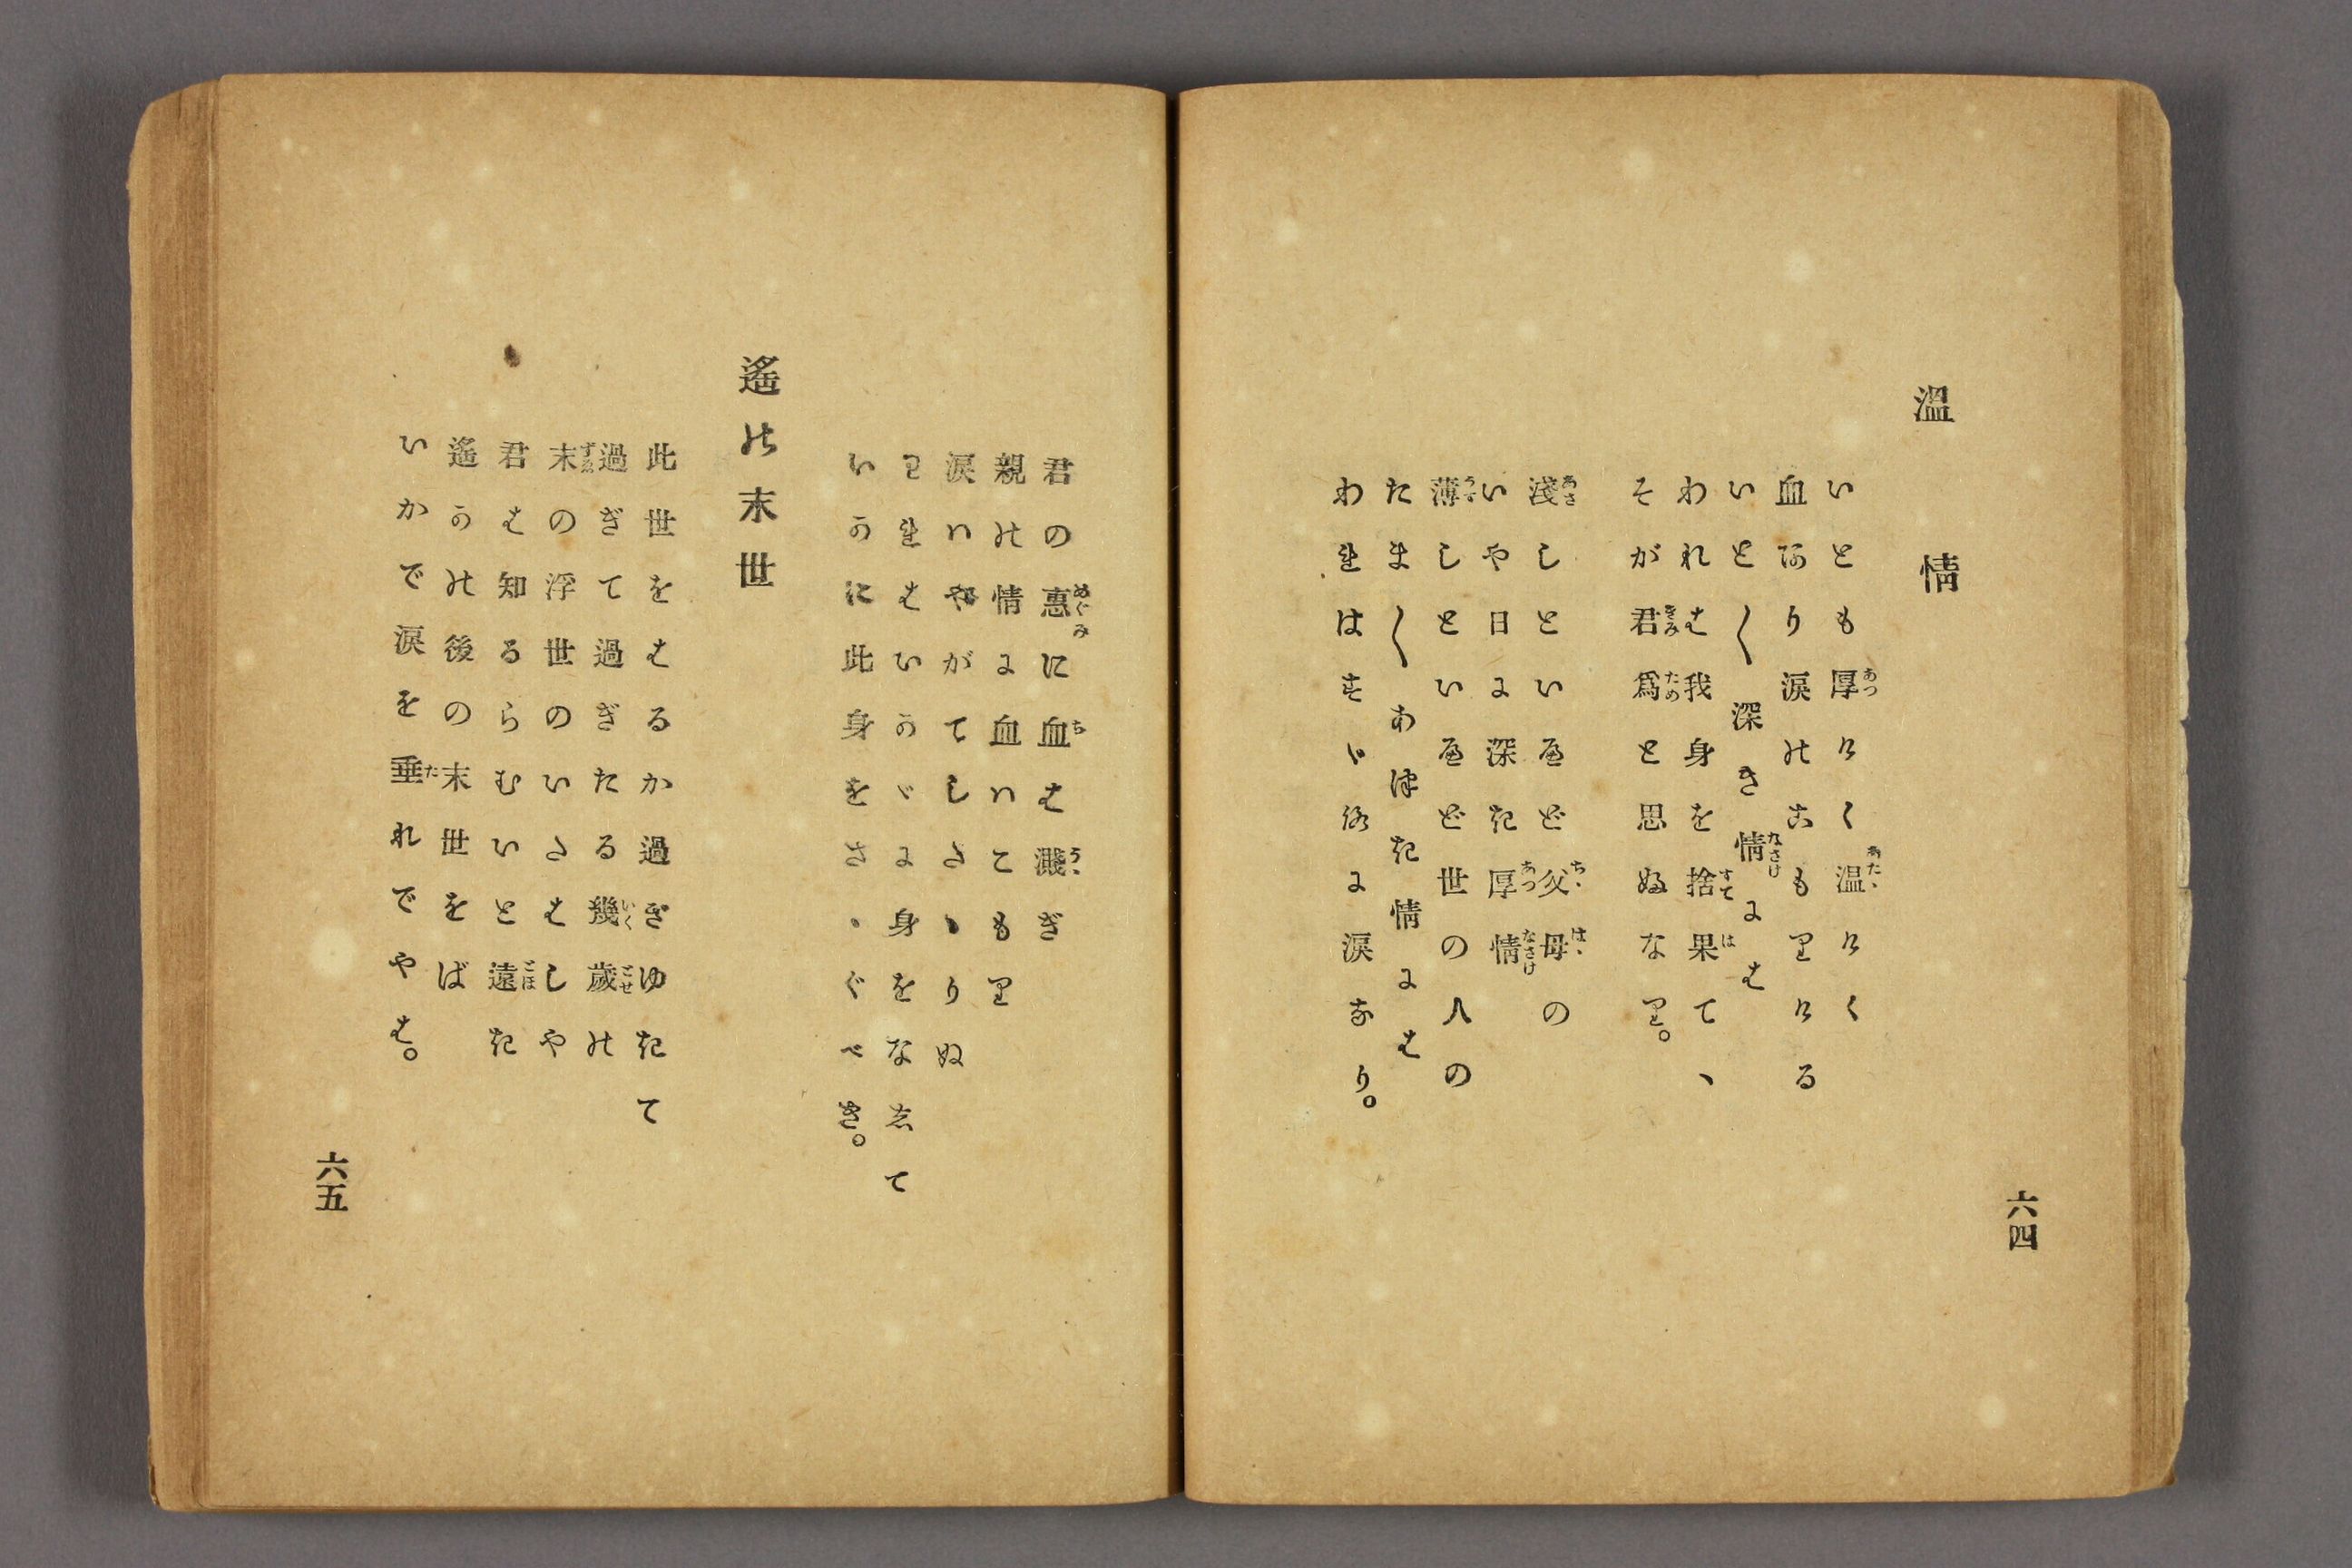 六四
溫情
いとも厚けく溫けく
血あり淚のこもりける
いと〱深き情には
われは我身を捨果てゝ
そが君爲と思ぬなり。
淺しといへど父母の
いや日に深き厚情
薄しといへど世の人の
たま〱あつき情には
われはすゞろに淚なり。
君の惠に血は濺ぎ
親の情に血ハこもり
淚ハやがてしたゝりぬ
われはいかゞに身をなして
いかに此身をさゝぐべき。
遙の末世
此世をはるか過ぎゆきて
過ぎて過ぎたる幾歲の
末の浮世のいたはしや
君は知るらむいと遠き
遙かの後の末世をば
いかで淚を垂れでやは。
六五